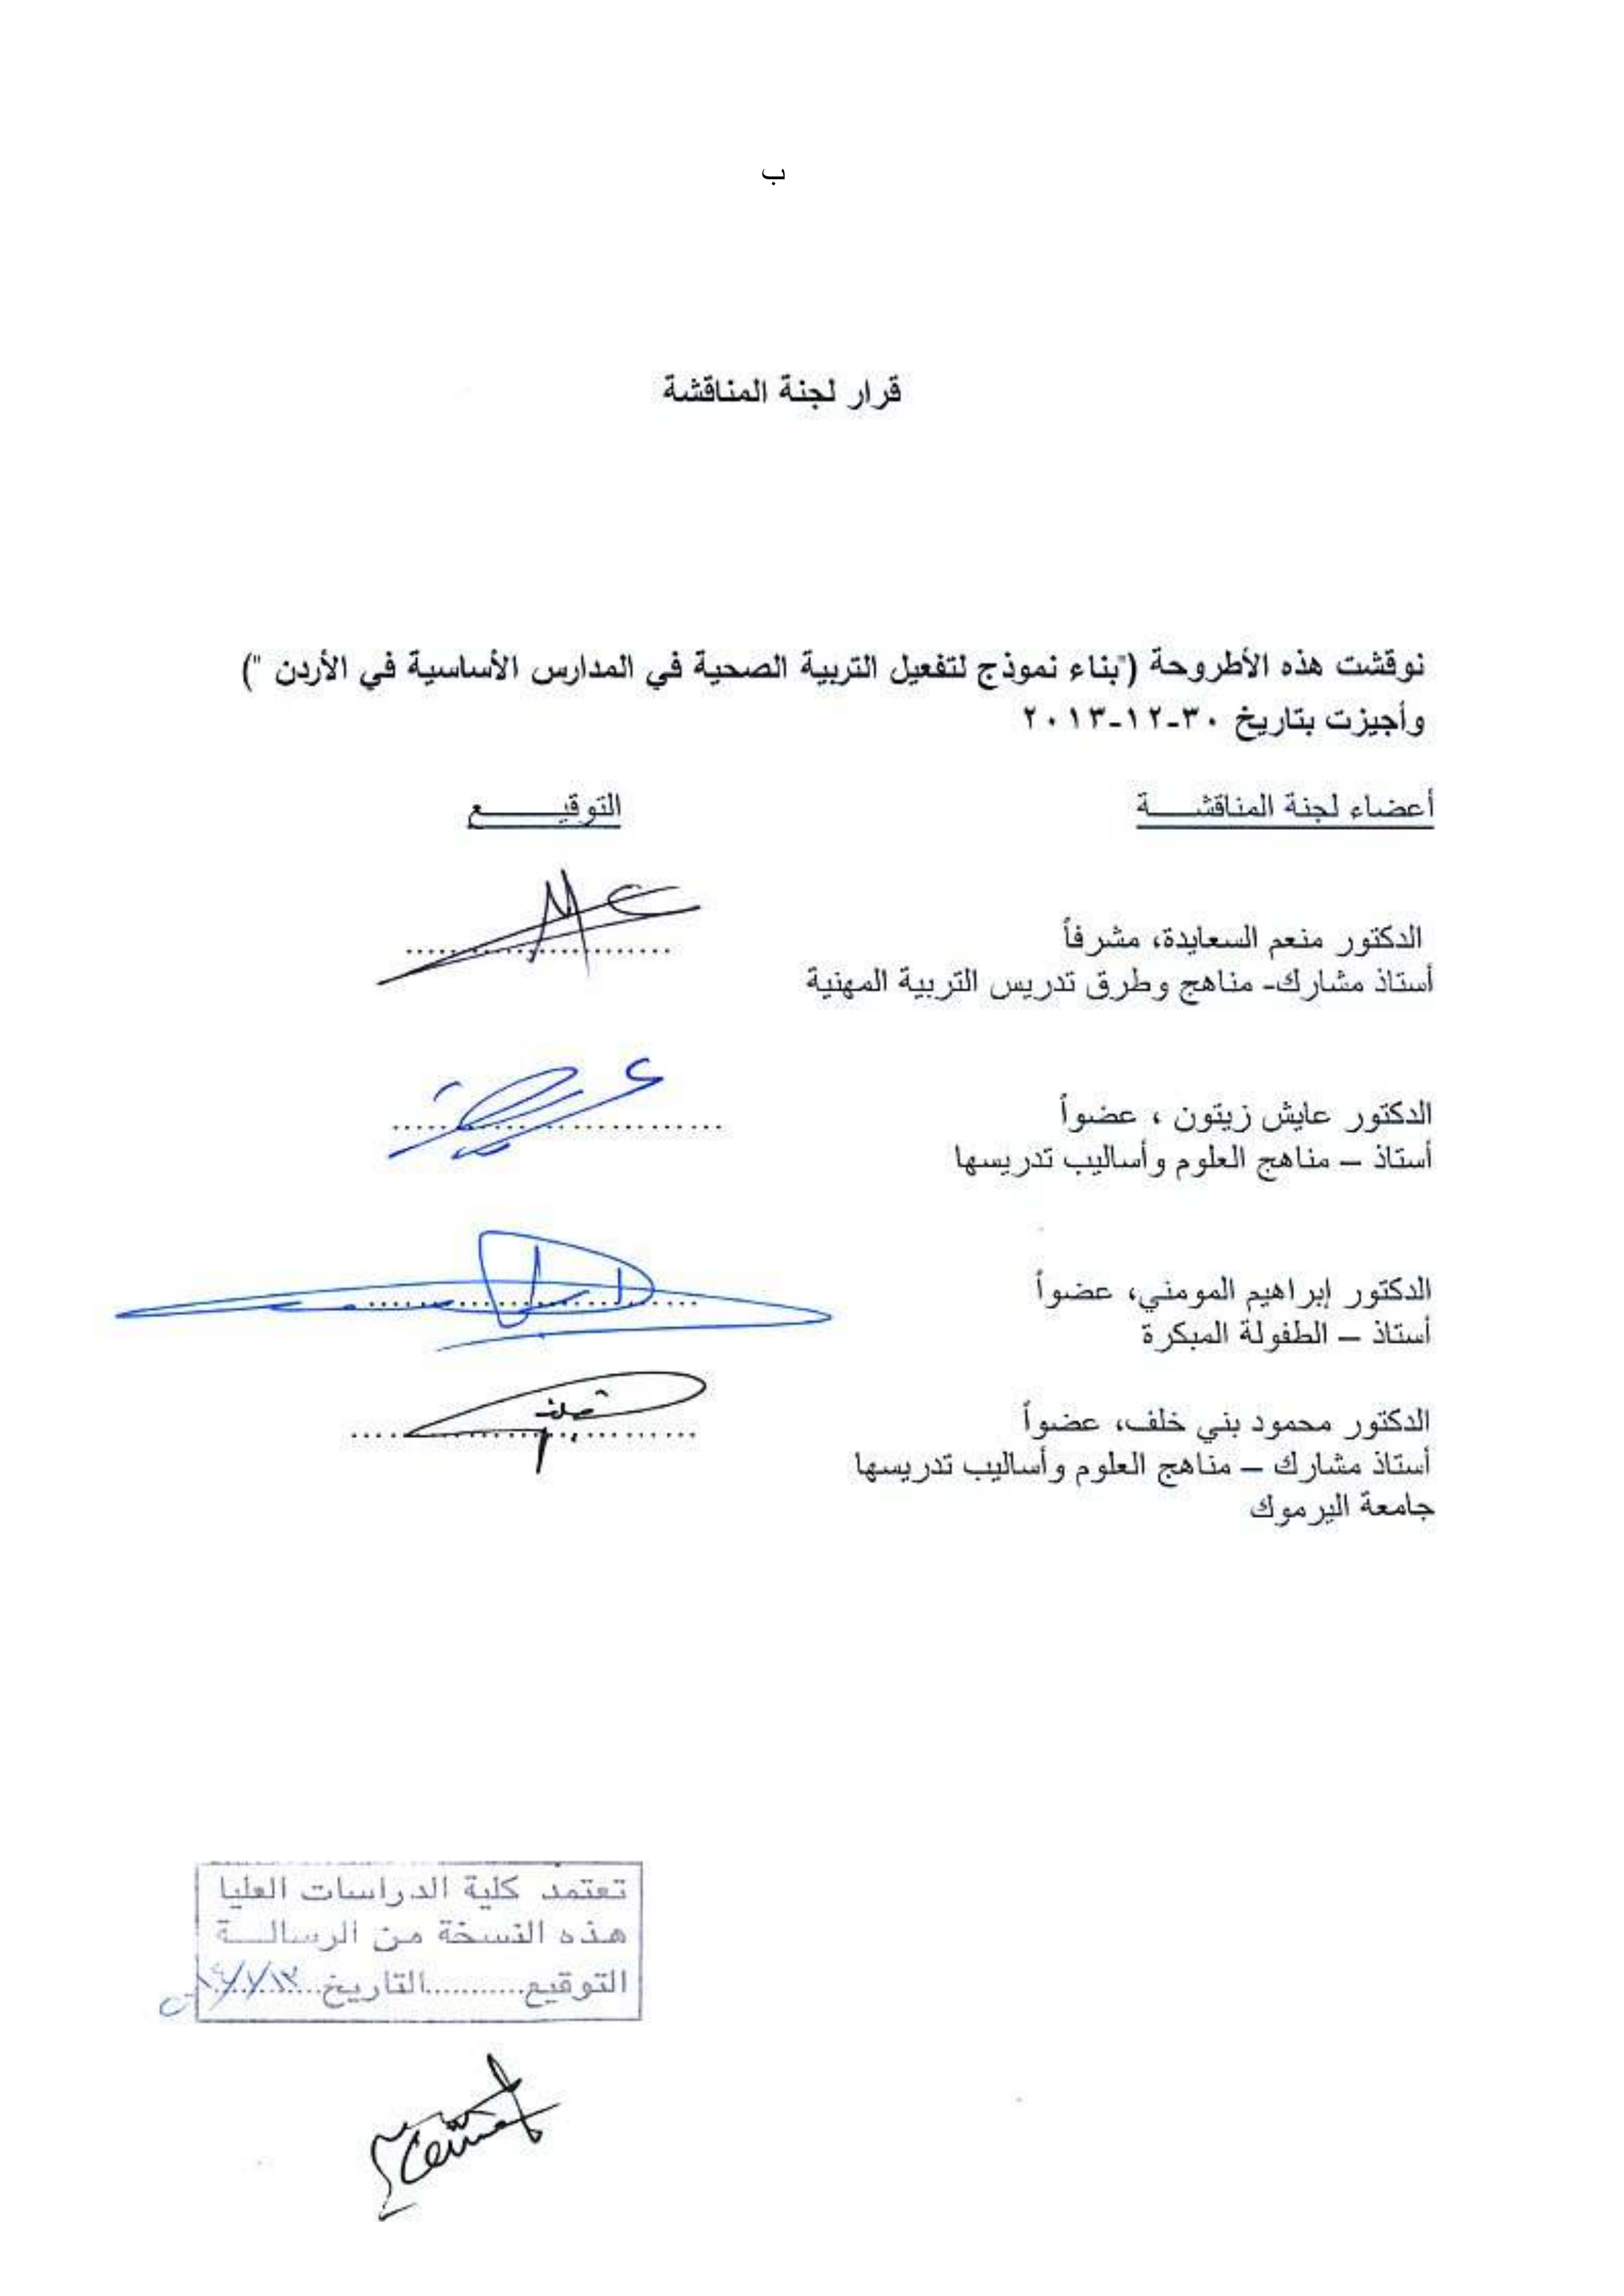 ب
قرار لجنة المناقشة
نوقشت هذه الأطروحة ("بناء نموذج لتفعيل التربية الصحية في المدارس الأساسية في الأردن ")
وأجيزت بتاريخ ٣٠-١٢-٢٠١٣
أعضاء لجنة المناقشـــــة
التوقيـــــــع
الدكتور منعم السعايدة، مشرفاً
أستاذ مشارك- مناهج وطرق تدريس التربية المهنية
الدكتور عايش زيتون ، عضواً
أستاذ – مناهج العلوم وأساليب تدريسها
الدكتور إبراهيم المومني، عضواً
أستاذ – الطفولة المبكرة
الدكتور محمود بني خلف، عضواً
أستاذ مشارك – مناهج العلوم وأساليب تدريسها
جامعة اليرموك
تعتمد كلية الدراسات العليا
هذه النسخة من الرسالـــة
التوقيع...........التاريخ...........